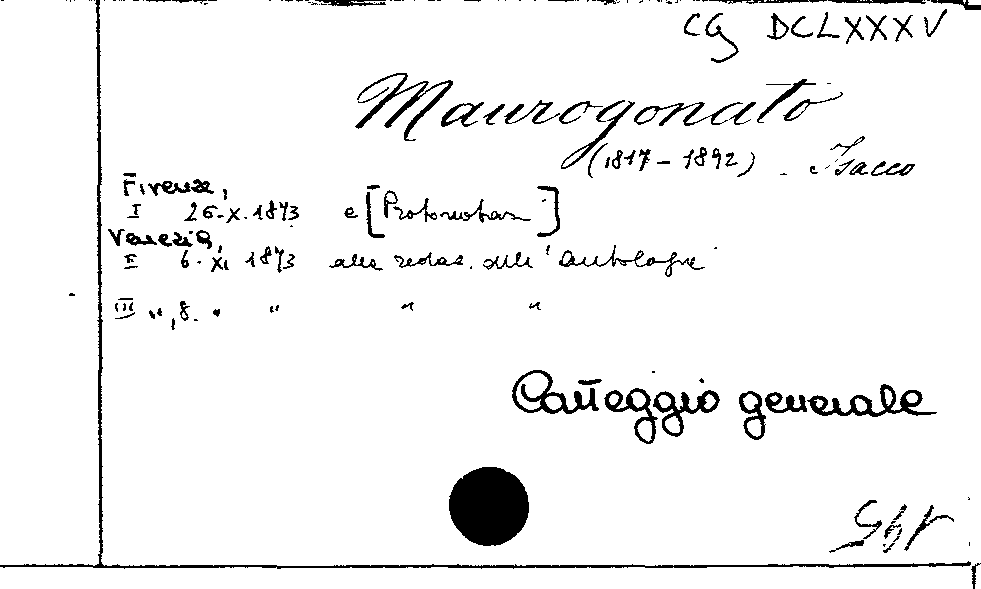 CG DCLXXXV
Maurogonato
(1817-1892). Isacco
Firenze,
I 26.X.1873 e [Protonotari]
Venezia,
II 6. XI 1873 alla redaz. dell' Antologia
III ", 8. " " " "
Carteggio generale